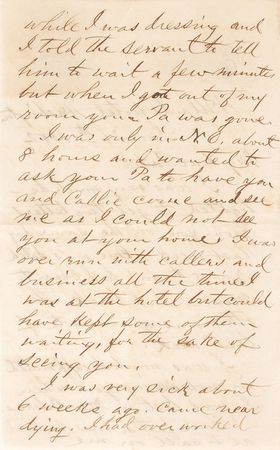 while I was dressing and
I told the servant to tell
him to wait a few minute
but when I got out of my
room your Pa was gone.
I was only in N.O. about
8 hours and wanted to
ask your Pa to have you
and Callie come and see
me as I could not see
you at your home. I was
over run with callers and
business all the time I
was at the hotel but could
have kept some of them
waiting, for the sake of
seeing you.
I was very sick about
6 weeks ago. Came near
dying. I had over worked